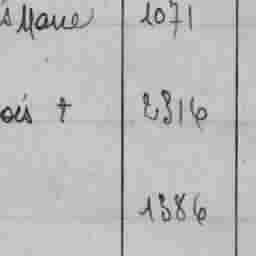 s Marie 1071
ois † 2316
1386